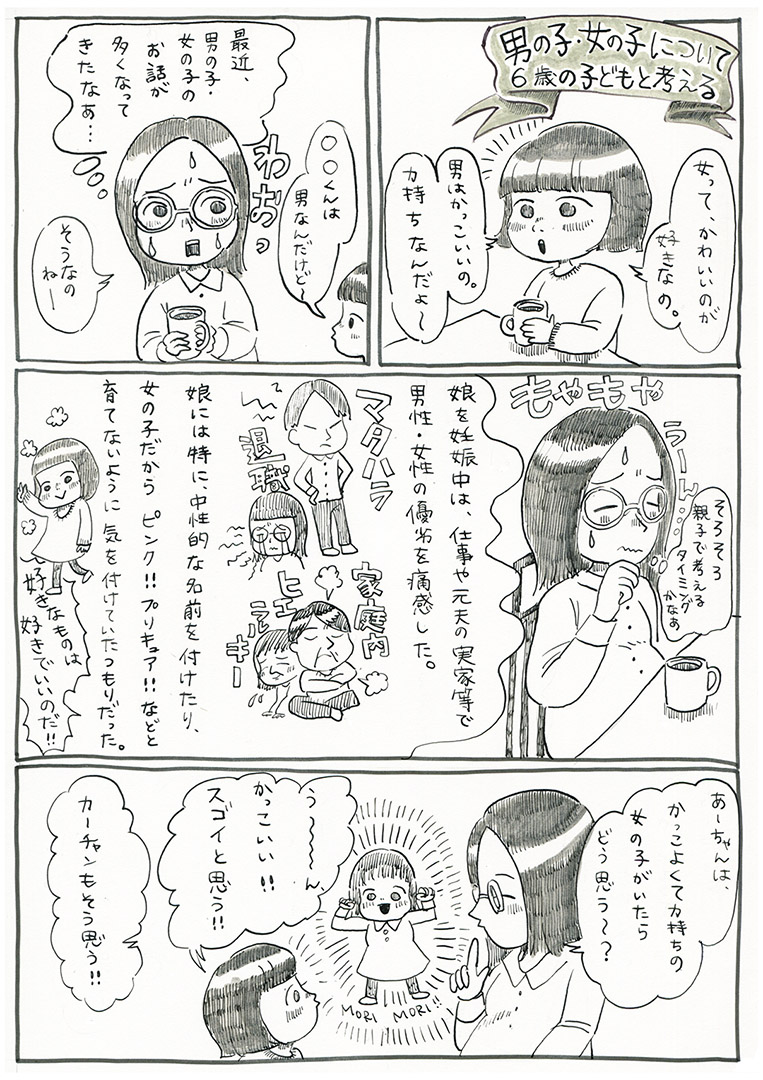 男の子・女の子について
6歳の子どもと考える
女って、かわいいのが
好きなの。
男はかっこいいの。
力持ちなんだよ〜
最近、
男の子・
女の子の
お話が
多くなって
きたなぁ…
わおっ
○○くんは
男なんだけど〜
そうなの
ねー
もやもや
うーん…
そろそろ
親子で考える
タイミング
かなぁ
娘を妊娠中は、仕事や元夫の実家等で
男性・女性の優劣を痛感した。
マタハラ
退職
家庭内
ヒエラルキー
娘には特に、中性的な名前を付けたり、
女の子だから ピンク!! プリキュア!! などと
育てないように 気を付けていたつもりだった。
好きなものは
好きでいいのだ!!
あーちゃんは、
かっこよくて力持ちの
女の子がいたら
どう思う〜?
MORI MORI!!
うう〜〜ん
かっこいい!!
スゴイと思う!!
カーチャンもそう思う!!